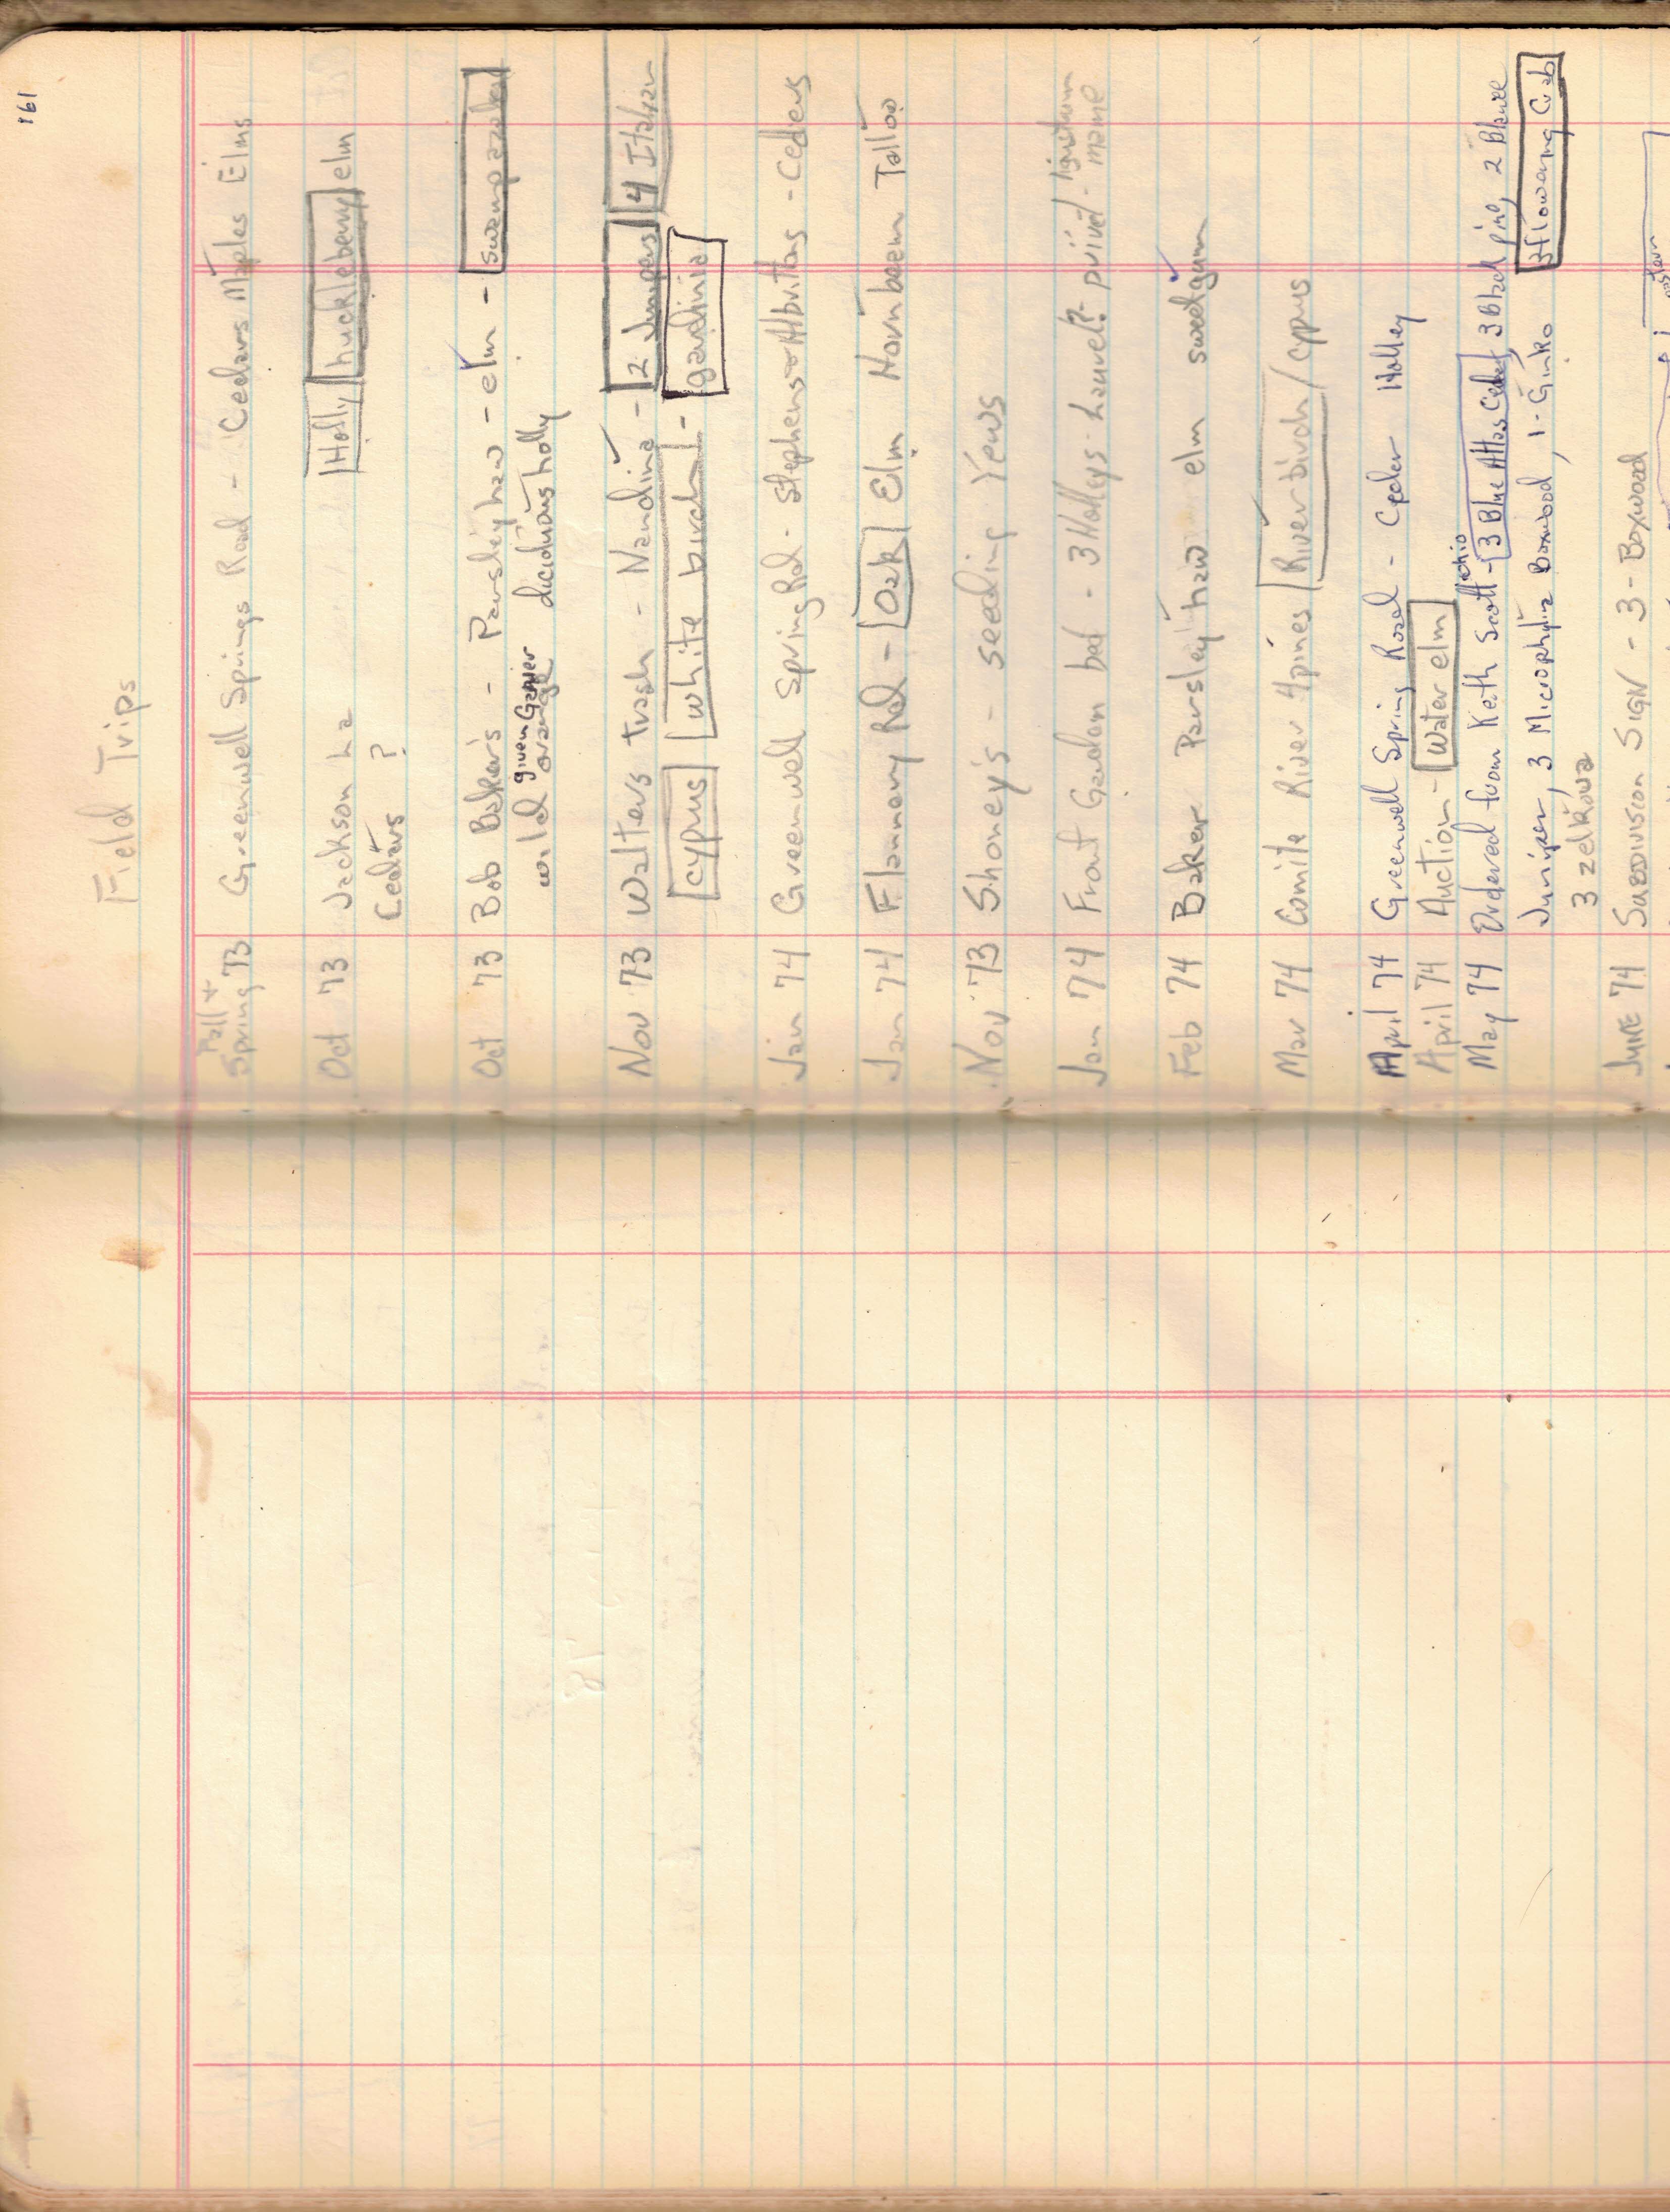 161
Field Trips
Fall +
Spring 73 Greenwell Springs Road - Cedars Maples Elms
Oct 73 Jackson La Holly huckleberry elm
Cedars ?
Oct 73 Bob Baker's - Parsley haw - elm - swamp azalea
given Garner
wild orange deciduous holly
Nov 73 Walters trash - Nandina - 2 Junipers 4 Italian
cyprus white birch - gardinia
Jan 74 Greenwell Spring Rd - Stephens & Albrittons - Ceders
Jan 74 Flannery Rd - Oak Elm Hornbeem Talloo
Nov 73 Shoney's - seeding Yews
ligustrum
Jan 74 Front Garden bed - 3 Holleys - Laurel? - privet - mame
Feb 74 Baker Parsley haw elm sweetgum
Mar 74 Comite River 4 pines River birch / cyprus
April 74 Greenwell Spring Road - Ceder Holley
April 74 Auction - Water elm
Ohio
May 74 Ordered from Keith Scott - 3 Blue Atlas Cedar, 3 Black pine, 2 Blawee
Juniper, 3 Microphylia Boxwood, 1 - Ginko 3 flowering Crab
3 zelkowa
JUNE 74 SUBDIVISION SIGN - 3 - Boxwood